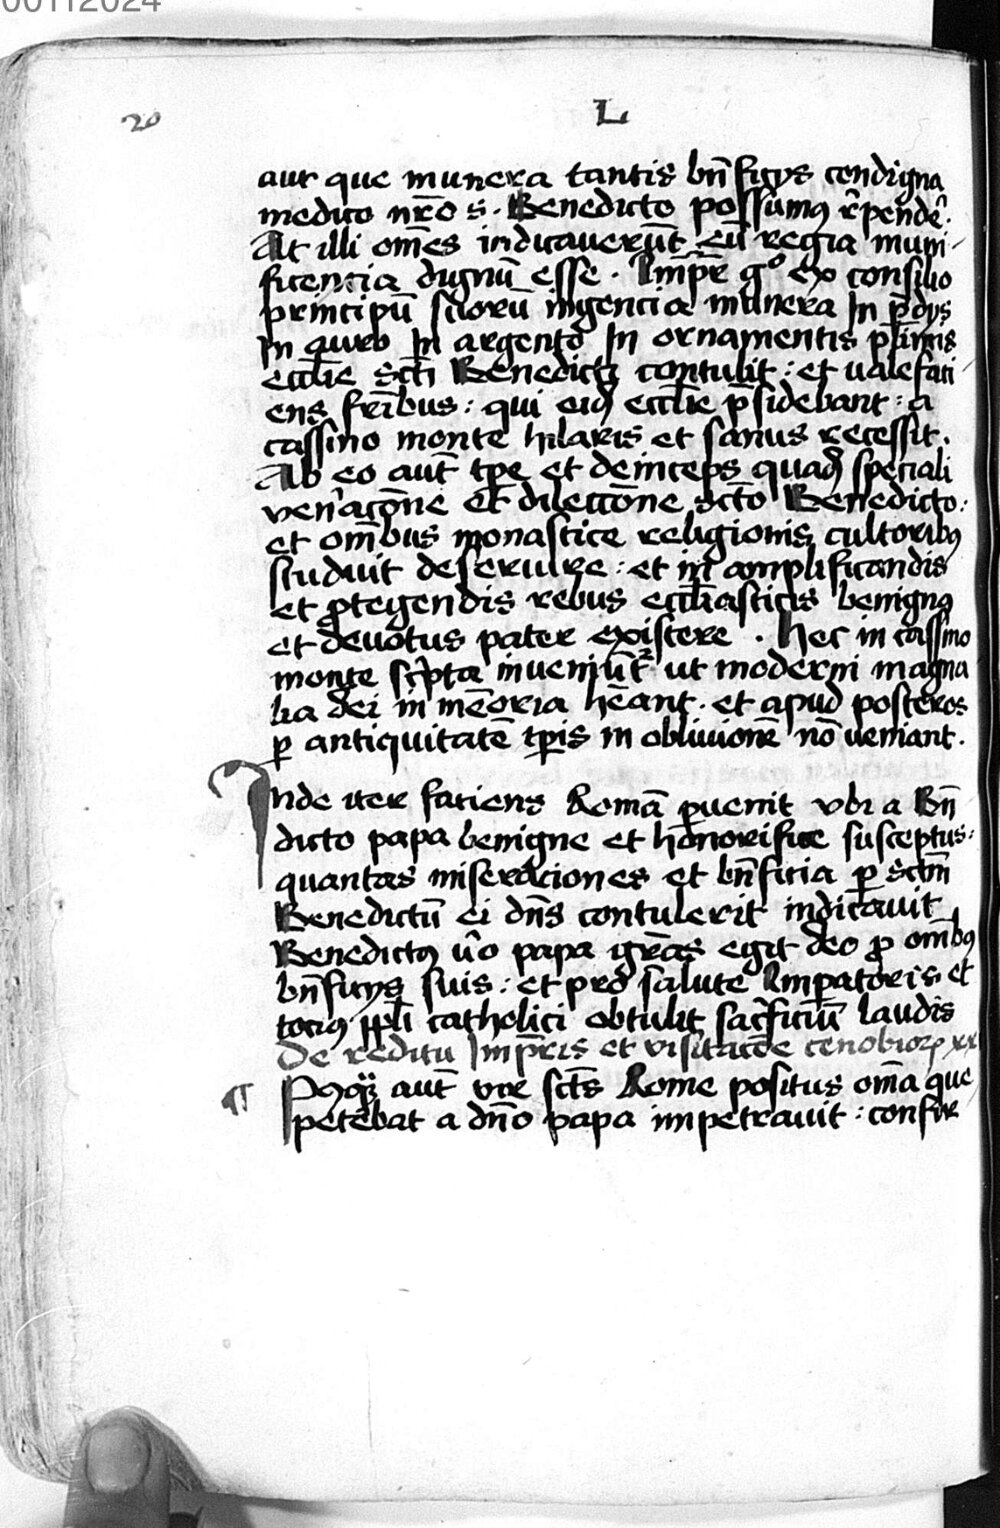 00112024
20
L
aut que munera tantis bn̄ficijs condigna
medico nr̄o s. Benedicto possumꝰ r̄pendē.
At illi om̄es indicauerūt eū regia muni
ficencia dignū esse. Imp̄r gͦ ex consilio
principū suorū ingencia munera In p̄dijs
In auro In argento In ornamentis pꝉimis
eccl̄ie sct̄i Benedicti contulit : et valefaci
ens fr̄ibus : qui eiꝰ eccl̄ie p̄sidebant : a
cassino monte hilaris et sanus recessit.
Ab eo aut̄ tp̄e et deinceps quadā speciali
ven̄acōne et dileccōne sct̄o Benedicto :
et om̄ibus monastice religionis cultoribꝰ
studuit deseruire : et in amplificandis
et ꝓtegendis rebus eccl̄iasticis benignꝰ
et deuotus pater existere . Hec in cassino
monte sc̄pta inueniūt᷑ ut moderni magna
lia dei in mēoria hēant. et apud posteros
ꝑ antiquitatē tp̄is in obliuionē nō veniant.
Inde iter faciens Romā ꝑuenit vbi a Bn̄
dicto papa benigne et honorifice susceptus :
quantas miseraciones et bn̄ficia ꝑ sct̄m
Benedictū ei dn̄s contulerit indicauit
Benedictꝰ v̄o papa gr̄as egit deo ꝓ om̄ibꝰ
bn̄ficijs suis : et pro salute Imꝑatoris et
tociꝰ ppl̄i catholici obtulit sac̄ficiū laudis
De reditu Imp̄ris et visitacōe cenobioꝝ xx
¶ Postqͣꝫ aut̄ vir sct̄s Rome positus om̄a que
petebat a dn̄o papa impetrauit : confir